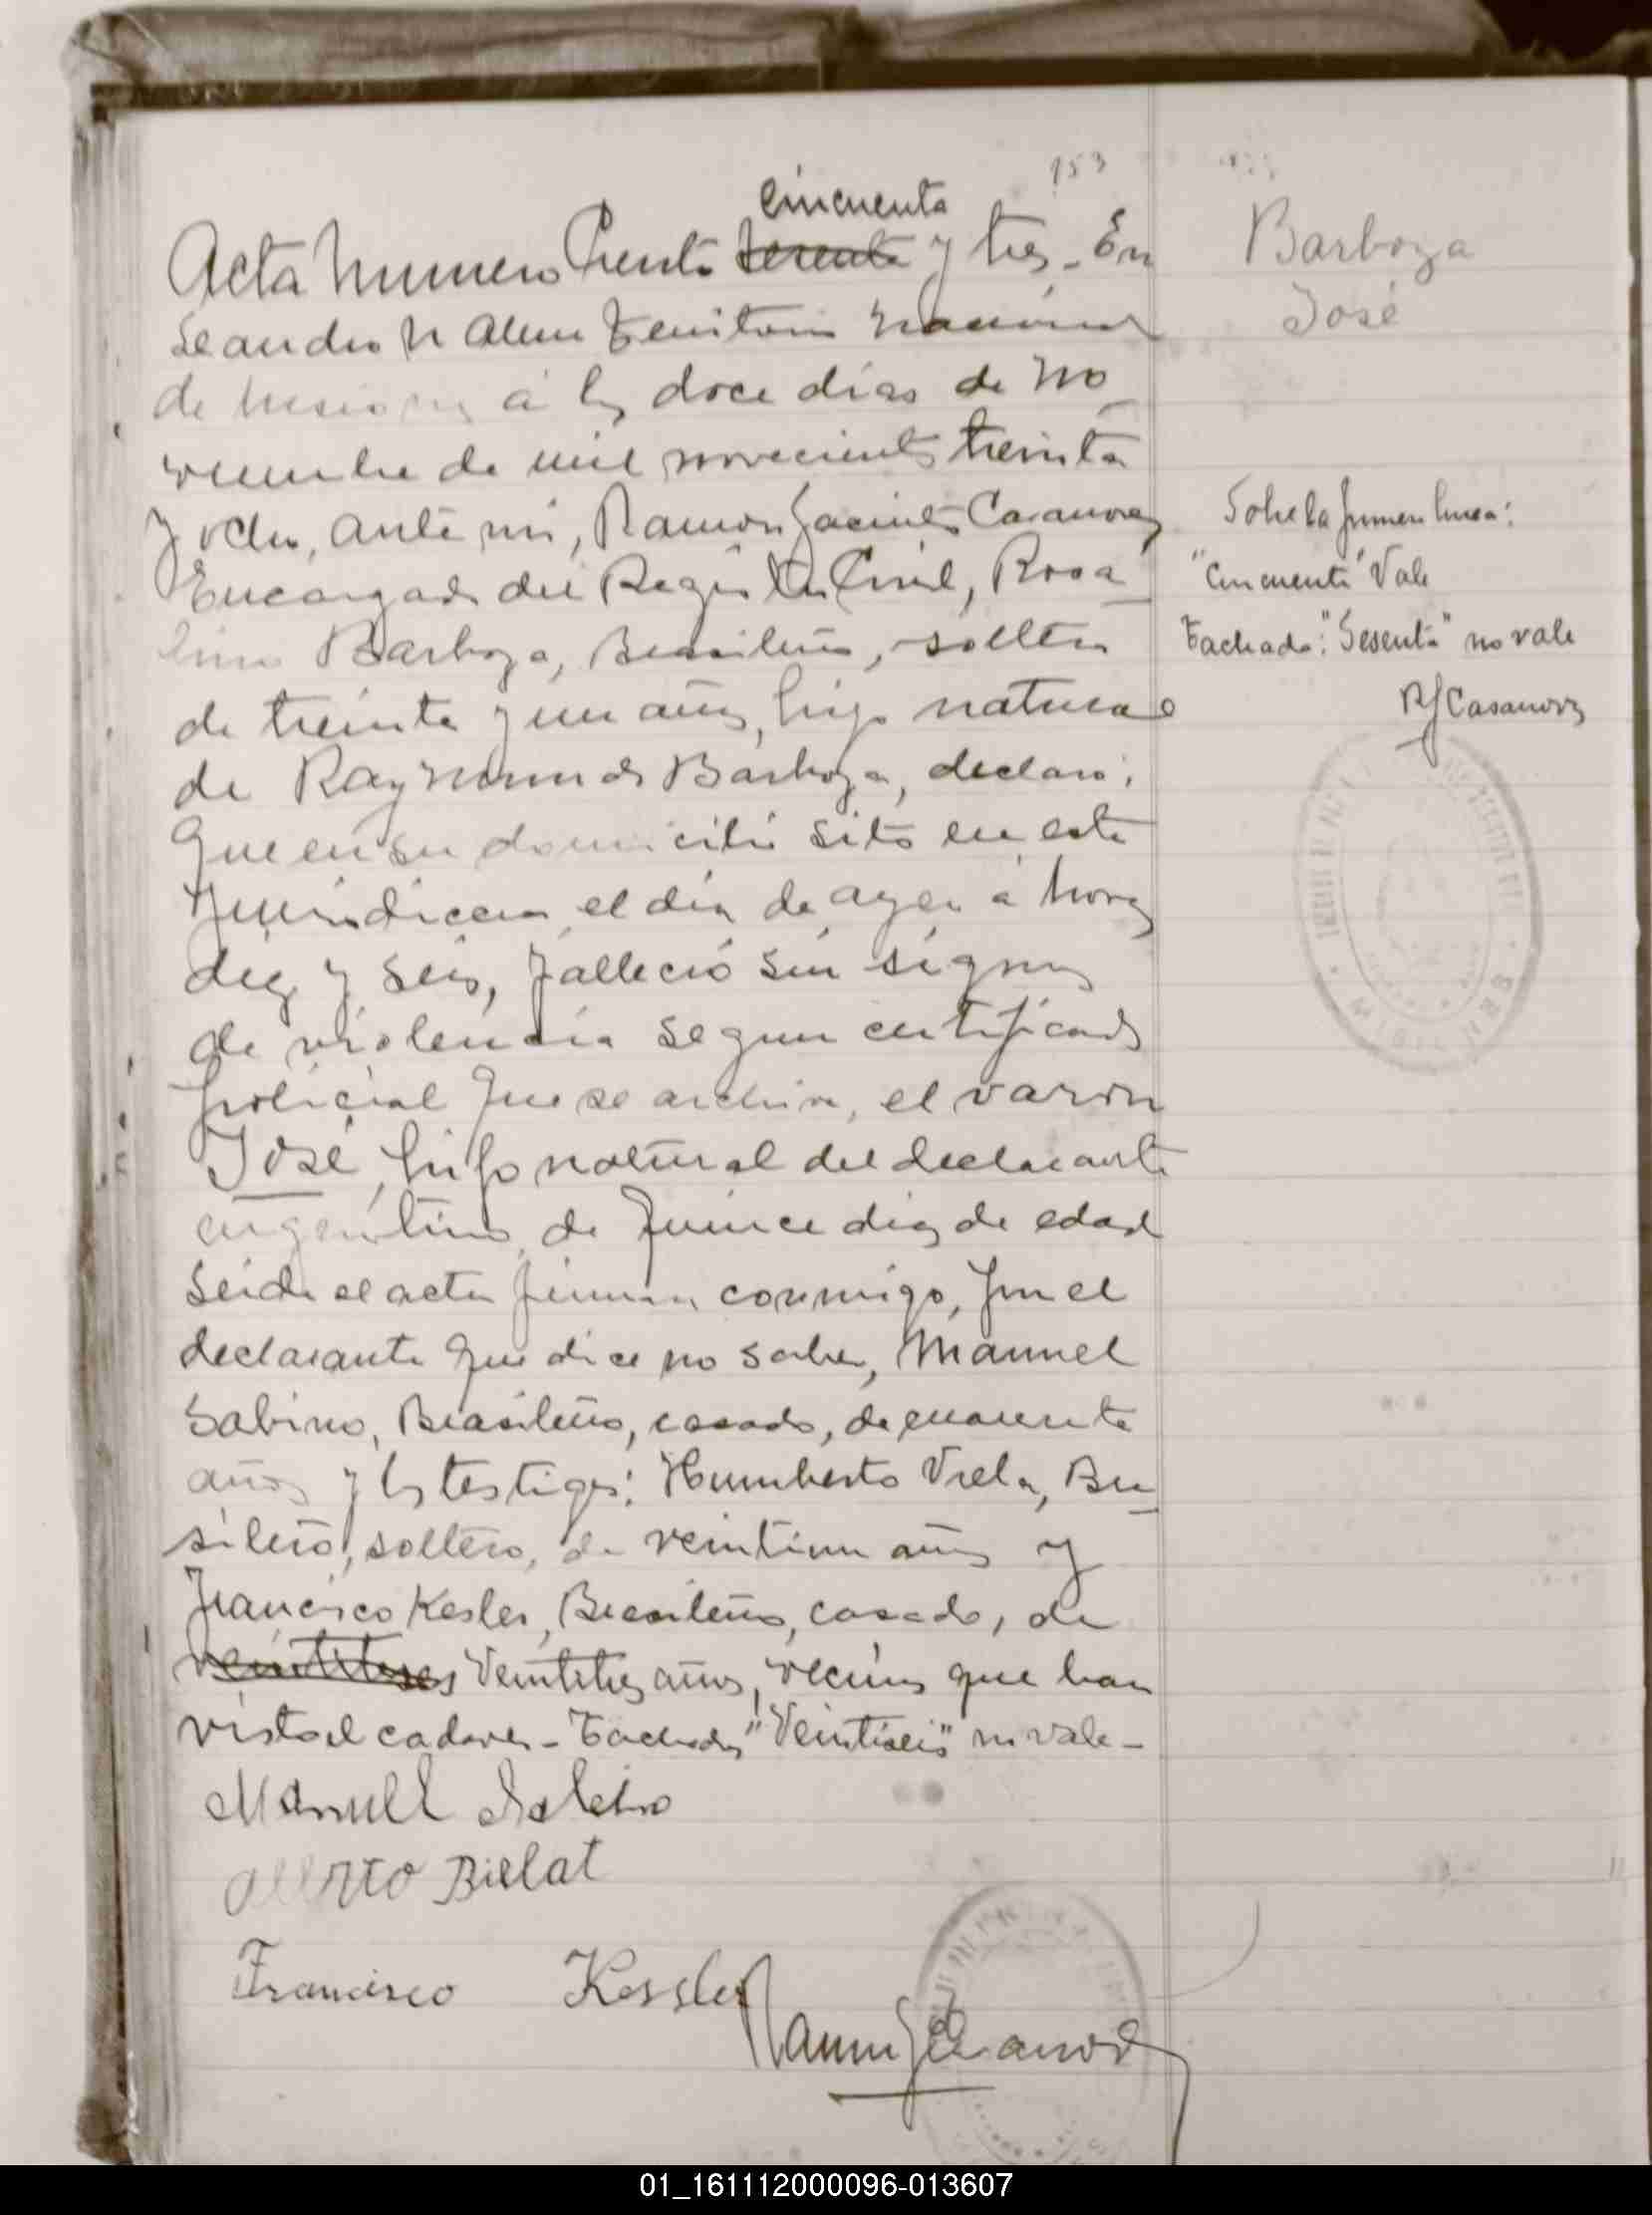 153
cincuenta
Acta Numero Ciento sesenta y tres - En
Leandro N Alem Territorio Nacional
de Misiones á los doce dias de No_
viembre de mil novecientos treinta
y ocho, ante mi, Ramon Jacinto Casanova
Encargado del Registro Civil, Rosa_
lino Barboza, Brasileño, soltero
de treinta y un años, hijo natural
de Raymundo Barboza, declaró:
Que en su domicilio sito en esta
Jurisdiccion, el dia de ayer á horas
diez y seis, falleció sin signos
de violencia segun certificado
policial que se archiva, el varon
José, hijo natural del declarante
argentino, de quince dias de edad
Leida el acta firman conmigo, por el
declarante que dice no saber, Manuel
Sabino, Brasileño, casado, de cuarenta
años y los testigos: Humberto Viela, Bra_
sileño, soltero, de veintiun años y
Francisco Kesler, Brasileño, casado, de
Veintitres años, vecinos que han
visto el cadaver - Tachado "Veintiseis" no vale -
Manuel
Bielat
Francisco Kessler
Ramon J Casanova
Barboza
José
Sobre la primera linea:
"Cincuenta" Vale
Tachado: "Sesenta" no vale
RJ Casanova
01_161112000096-013607